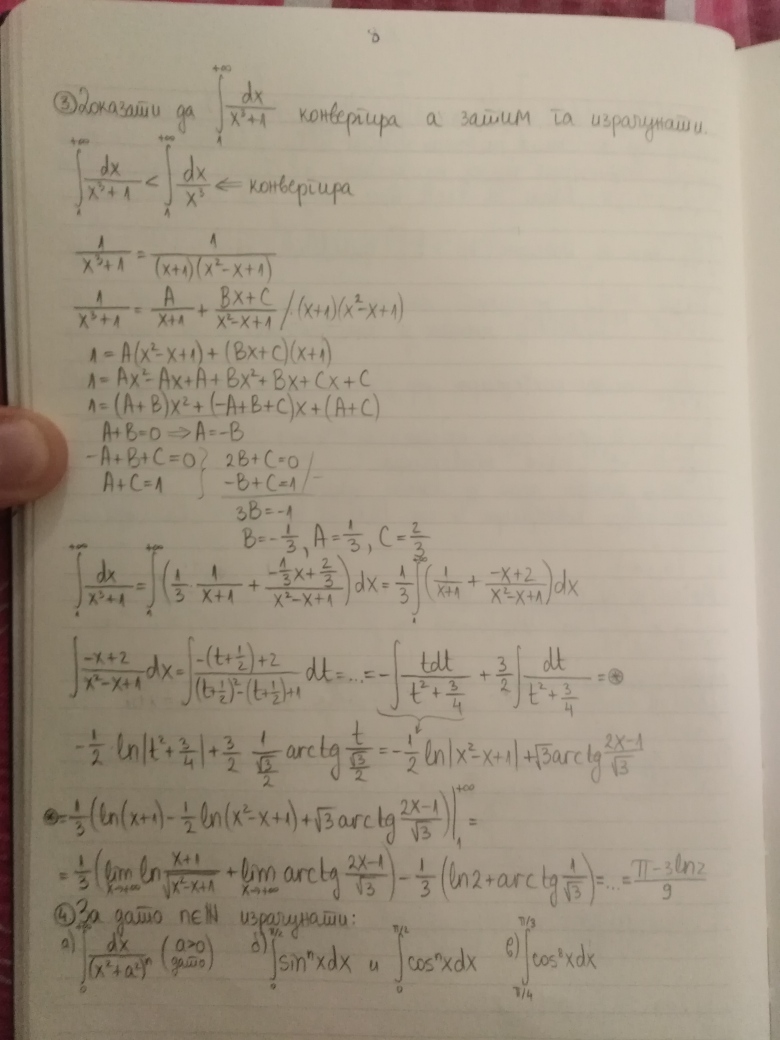 ③ Доказати да ∫₁^{+∞} dx/(x³+1) конвергира а затим га израчунати.
∫₁^{+∞} dx/(x³+1) < ∫₁^{+∞} dx/x³ ⇐ конвергира
1/(x³+1) = 1/((x+1)(x²-x+1))
1/(x³+1) = A/(x+1) + (Bx+C)/(x²-x+1) /·(x+1)(x²-x+1)
1=A(x²-x+1)+(Bx+C)(x+1)
1=Ax²-Ax+A+Bx²+Bx+Cx+C
1=(A+B)x²+(-A+B+C)x+(A+C)
A+B=0 ⇒ A=-B
-A+B+C=0 } 2B+C=0
A+C=1 } -B+C=1 /-
3B=-1
B=-1/3, A=1/3, C=2/3
∫₁^{+∞} dx/(x³+1) = ∫₁^{+∞} (1/3 · 1/(x+1) + (-1/3x+2/3)/(x²-x+1)) dx = 1/3 ∫₁^{+∞} (1/(x+1) + (-x+2)/(x²-x+1)) dx
∫ (-x+2)/(x²-x+1) dx = ∫ (-(t+1/2)+2)/((t+1/2)²-(t+1/2)+1) dt = ... = -∫ tdt/(t²+3/4) + 3/2 ∫ dt/(t²+3/4) = ⊛
-1/2 ln|t²+3/4| + 3/2 1/(√3/2) arctg t/(√3/2) = -1/2 ln|x²-x+1| + √3 arctg (2x-1)/√3
⊛ = 1/3 (ln(x+1) - 1/2 ln(x²-x+1) + √3 arctg (2x-1)/√3) |₁^{+∞} =
= 1/3 (lim_{x→+∞} ln (x+1)/√(x²-x+1) + lim_{x→+∞} arctg (2x-1)/√3) - 1/3 (ln2 + arctg 1/√3) = ... = (π-3ln2)/9
④ За дато n∈ℕ израчунати:
а) ∫₀^{+∞} dx/(x²+a²)ⁿ (a>0 дато) б) ∫₀^{π/2} sinⁿxdx и ∫₀^{π/2} cosⁿxdx в) ∫_{π/4}^{π/3} cos²xdx